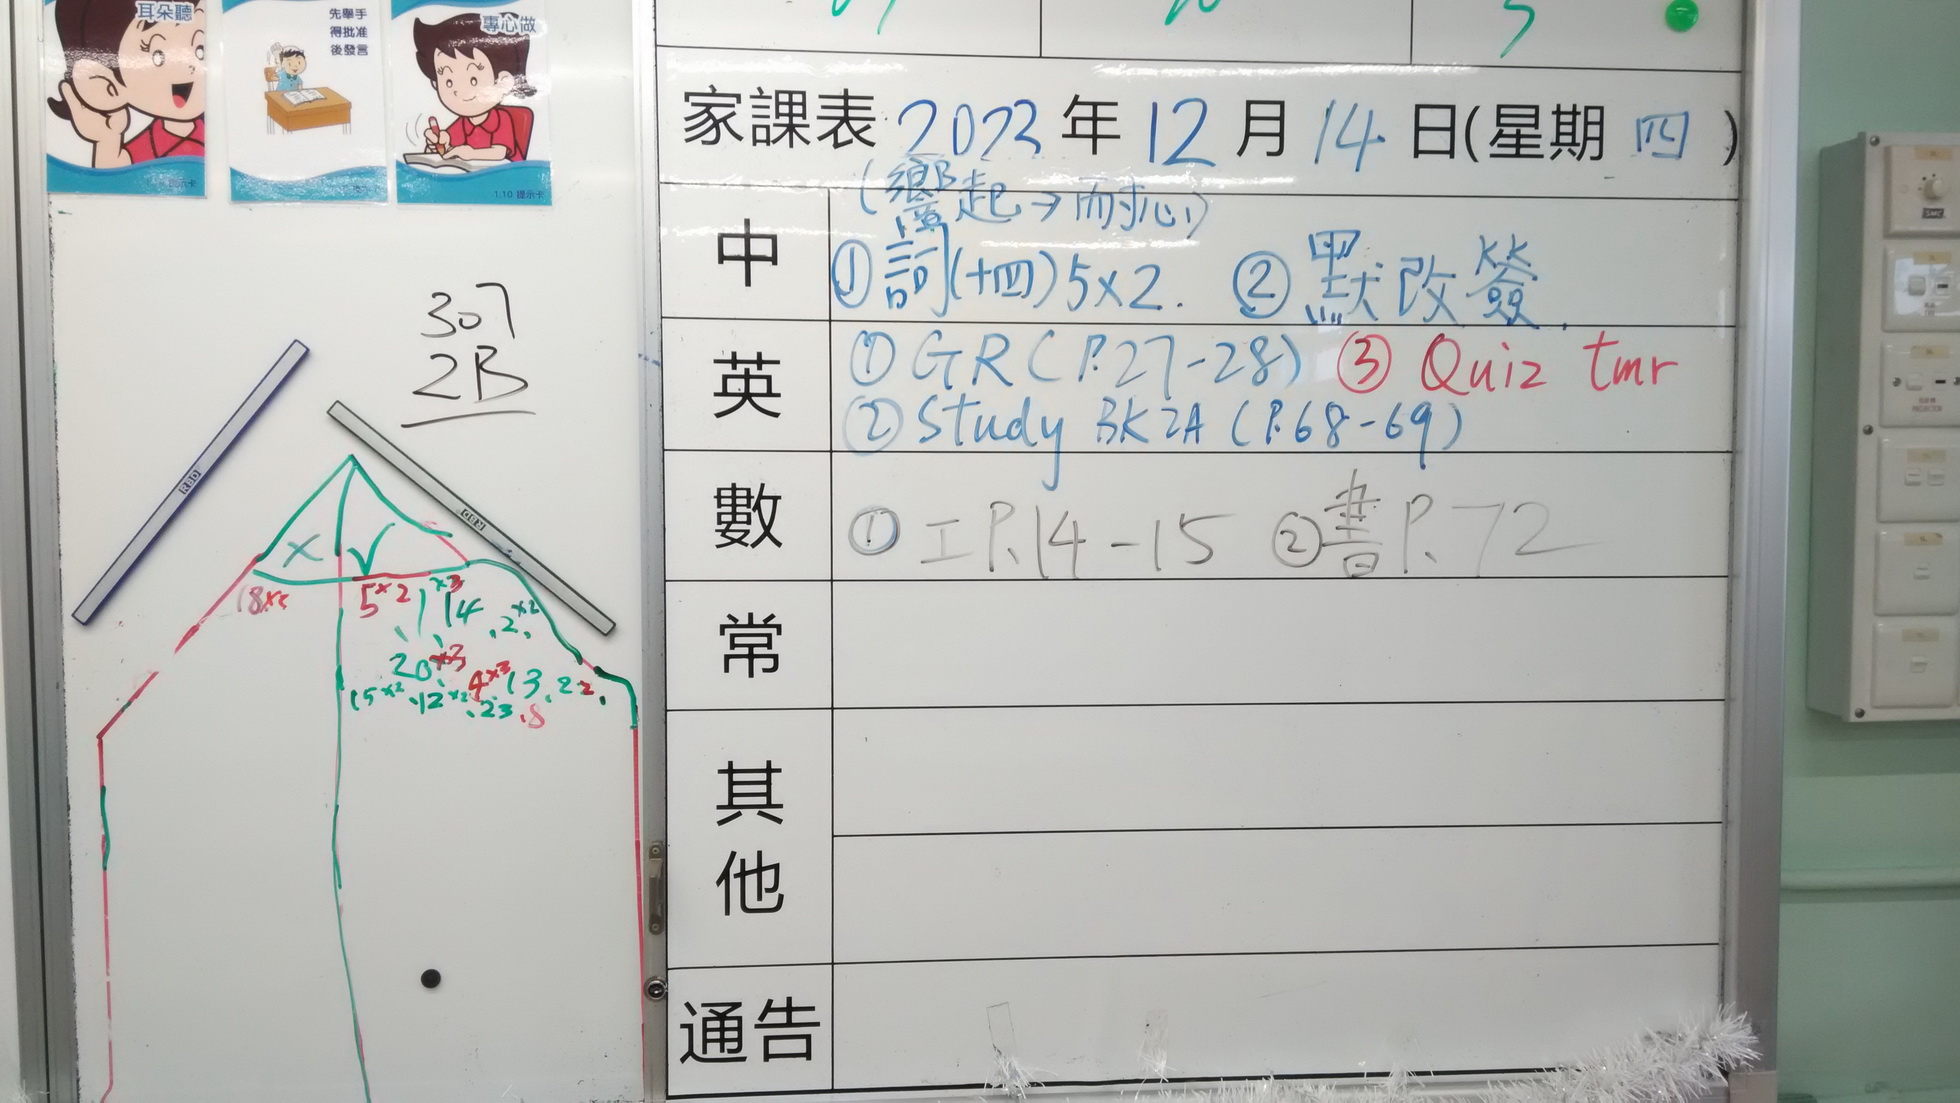 耳朵聽
先舉手
得批准
後發言
專心做
1.10 提示卡
307
2B
RBD
RBD
× ✓
18 5×2 14×3 .2×2.
20×3
15×2 .12×2 4×3 13.22.
.23.8
家課表 2023 年 12 月 14 日(星期 四 )
(響起→耐心)
中 ①詞(十四)5×2. ②默改簽.
英 ①GR(P.27-28) ③ Quiz tmr
②Study BK2A (P.68-69)
數 ①工P.14-15 ②書P.72
常
其他
通告